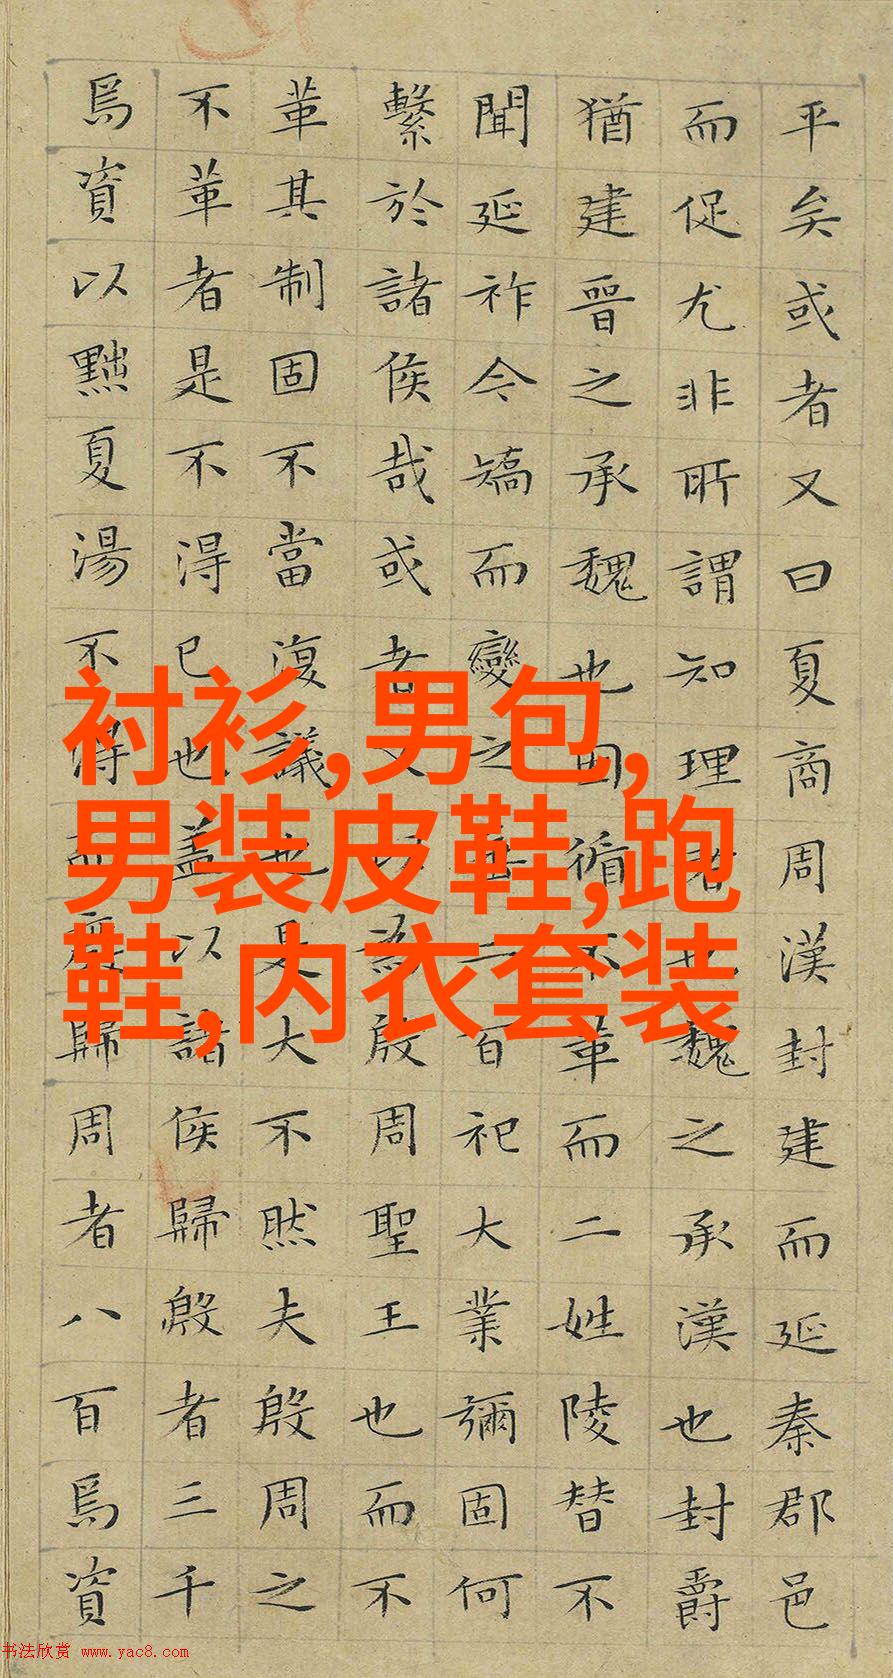 平矣或者又曰夏商周漢封建而延秦郡邑
而促尤非所謂知理者也魏之承漢也封爵
猶建晉之承魏也因循不革而二姓陵替不
聞延祚今矯而變之垂二百祀大業彌固何
繫於諸侯哉或者又以為殷周聖王也而不
革其制固不當復議也是大不然夫殷周之
不革者是不得已也蓋以諸侯歸殷者三千
焉資以黜夏湯不得而廢歸周者八百焉資
衬衫,男包,
男装皮鞋,跑
鞋,内衣套装
书法欣赏 www.yac8.com